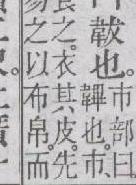 韍也。
巿部曰
韠也。巿、
食之。衣其皮。先
易之以布帛。而